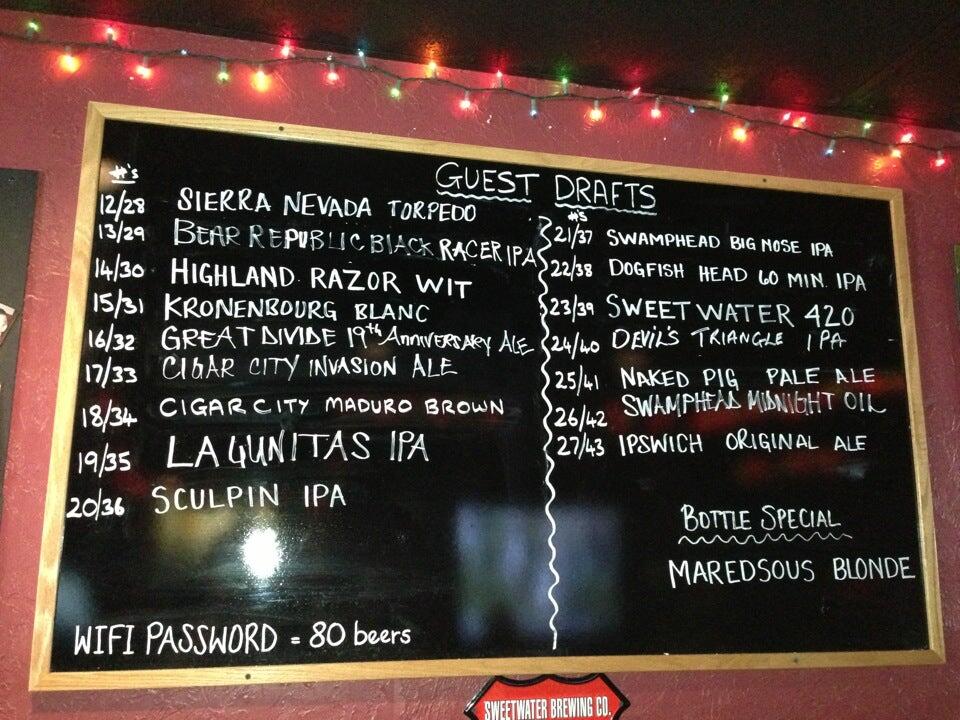 GUEST DRAFTS
#'s
12/28 SIERRA NEVADA TORPEDO
13/29 BEAR REPUBLIC BLACK RACER IPA
14/30 HIGHLAND RAZOR WIT
15/31 KRONENBOURG BLANC
16/32 GREAT DIVIDE 19th ANNIVERSARY ALE
17/33 CIGAR CITY INVASION ALE
18/34 CIGAR CITY MADURO BROWN
19/35 LAGUNITAS IPA
20/36 SCULPIN IPA
#'s
21/37 SWAMPHEAD BIG NOSE IPA
22/38 DOGFISH HEAD 60 MIN. IPA
23/39 SWEET WATER 420
24/40 DEVIL'S TRIANGLE IPA
25/41 NAKED PIG PALE ALE
26/42 SWAMPHEAD MIDNIGHT OIL
27/43 IPSWICH ORIGINAL ALE
BOTTLE SPECIAL
MAREDSOUS BLONDE
WIFI PASSWORD = 80 beers
SWEETWATER BREWING CO.